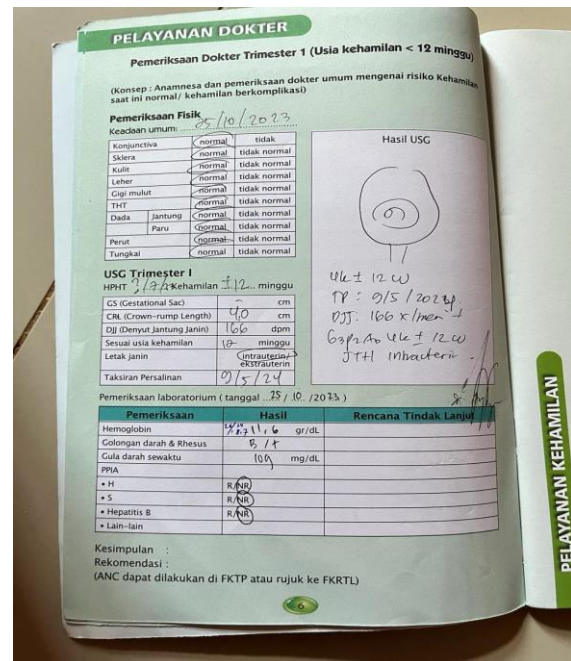 PELAYANAN DOKTER
Pemeriksaan Dokter Trimester 1 (Usia kehamilan < 12 minggu)
(Konsep : Anamnesa dan pemeriksaan dokter umum mengenai risiko Kehamilan
saat ini normal/ kehamilan berkomplikasi)
Pemeriksaan Fisik
Keadaan umum: 25/10/2023
Konjunctiva normal tidak
Sklera normal tidak normal
Kulit normal tidak normal
Leher normal tidak normal
Gigi mulut normal tidak normal
THT normal tidak normal
Dada Jantung normal tidak normal
Paru normal tidak normal
Perut normal tidak normal
Tungkai normal tidak normal
Hasil USG
UK ± 12 W
TP : 9/5/2024
DJJ : 166 x/men
G3P2A0 UK ± 12 W
JTH Intrauterin
USG Trimester I
HPHT Kehamilan ±12 minggu
GS (Gestational Sac) - cm
CRL (Crown-rump Length) 4,0 cm
DJJ (Denyut Jantung Janin) 166 dpm
Sesuai usia kehamilan 12 minggu
Letak janin intrauterin/
ekstrauterin
Taksiran Persalinan 9/5/24
Pemeriksaan laboratorium ( tanggal 25 / 10 /2023 )
Pemeriksaan Hasil Rencana Tindak Lanjut
Hemoglobin 11,6 gr/dL
Golongan darah & Rhesus B /+
Gula darah sewaktu 109 mg/dL
PPIA
• H R/NR
• S R/NR
• Hepatitis B R/NR
• Lain-lain
Kesimpulan :
Rekomendasi :
(ANC dapat dilakukan di FKTP atau rujuk ke FKRTL)
6
PELAYANAN KEHAMILAN